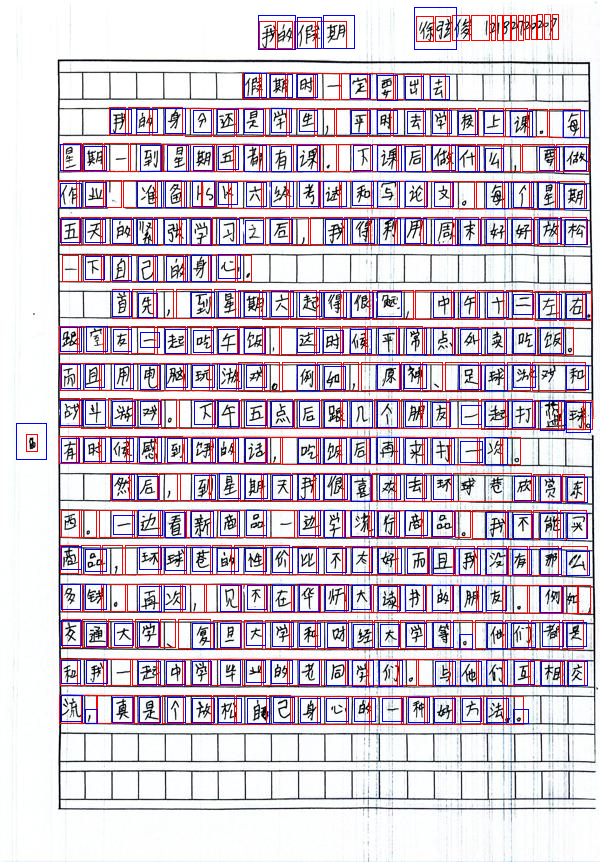 我的假期 徐弦俊 12132720207
假期时一定要出去
我的身分还是学生，平时去学校上课。每
星期一到星期五都有课。下课后做什么，要做
作业、准备以以六级考试和写论文。每个星期
五天的紧张学习之后，我得利用周末好好放松
一下自己的身心。
首先，到星期六起得很晚，中午十二左右.
跟室友一起吃午饭，这时候平常点外卖吃饭。
而且用电脑玩游戏。例如，原神、足球游戏和
战斗游戏。下午五点后跟几个朋友一起打篮球。
有时候感到饿的话，吃饭后再来打一次。
然后，到星期天我很喜欢去环球巷欣赏东
西。一边看新商品一边学流行商品。我不能买
商品，环球巷的性价比不太好而且我没有那么
多钱。再次，见不在华师大读书的朋友。例如，
交通大学、复旦大学和财经大学等。他们都是
和我一起中学毕业的老同学们。与他们互相交
流，真是个放松自己身心的一种好方法。